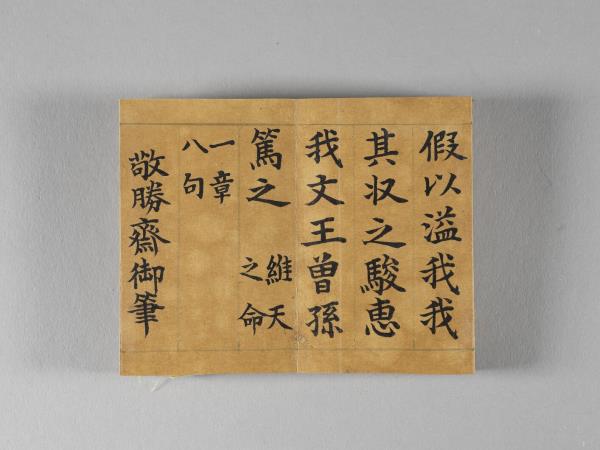 假以溢我我
其収之駿惠
我文王曽孫
篤之 維天之命
一章
八句
敬勝齋御筆